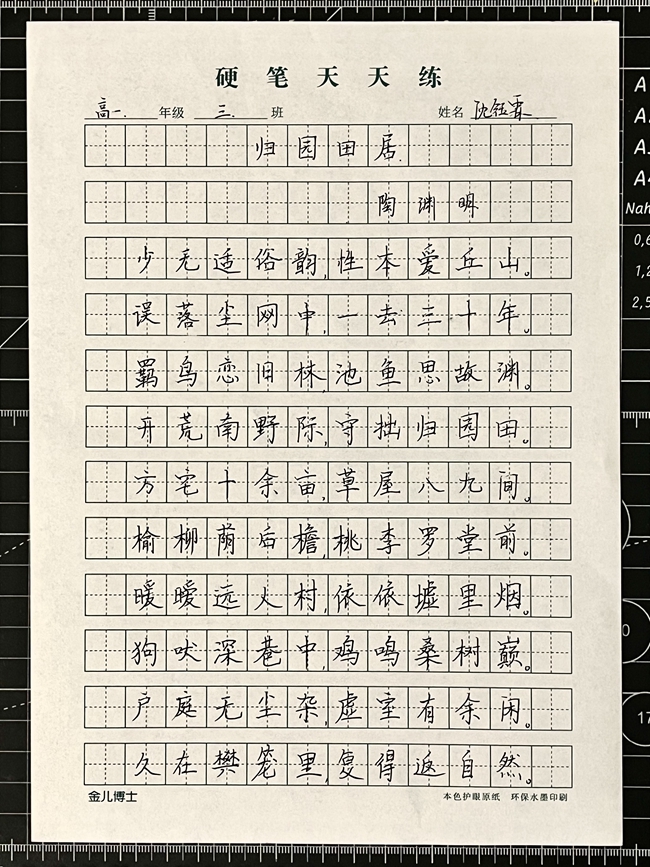 硬笔天天练
高一. 年级 三. 班 姓名 沈钰霖
归园田居
陶渊明
少无适俗韵,性本爱丘山。
误落尘网中,一去三十年。
羁鸟恋旧林,池鱼思故渊。
开荒南野际,守拙归园田。
方宅十余亩,草屋八九间。
榆柳荫后檐,桃李罗堂前。
暖暧远人村,依依墟里烟。
狗吠深巷中,鸡鸣桑树巅。
户庭无尘杂,虚室有余闲。
久在樊笼里,复得返自然。
金儿博士 本色护眼原纸 环保水墨印刷
A
A
A
A4
Nah
0,6
1,2
2,5
0
17